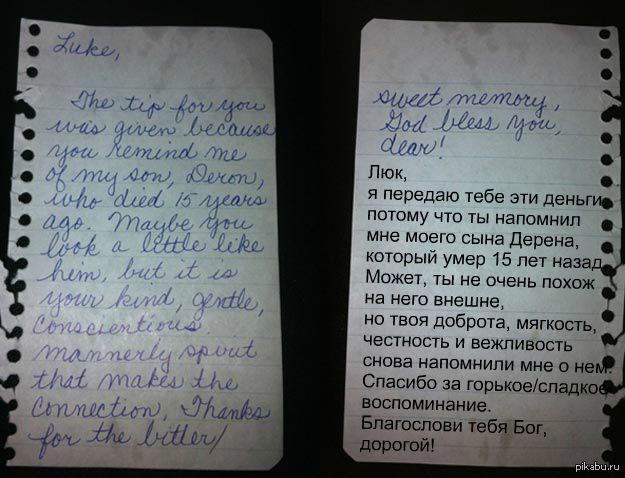 Luke,
The tip for you
was given because
you remind me
of my son, Deron,
who died 15 years
ago. Maybe you
look a little like
him, but it is
your kind, gentle,
conscientious
mannerly spirit
that makes the
connection, Thanks
for the bitter/
sweet memory,
God bless you,
dear!
Люк,
я передаю тебе эти деньги,
потому что ты напомнил
мне моего сына Дерена,
который умер 15 лет назад.
Может, ты не очень похож
на него внешне,
но твоя доброта, мягкость,
честность и вежливость
снова напомнили мне о нем.
Спасибо за горькое/сладкое
воспоминание.
Благослови тебя Бог,
дорогой!
pikabu.ru